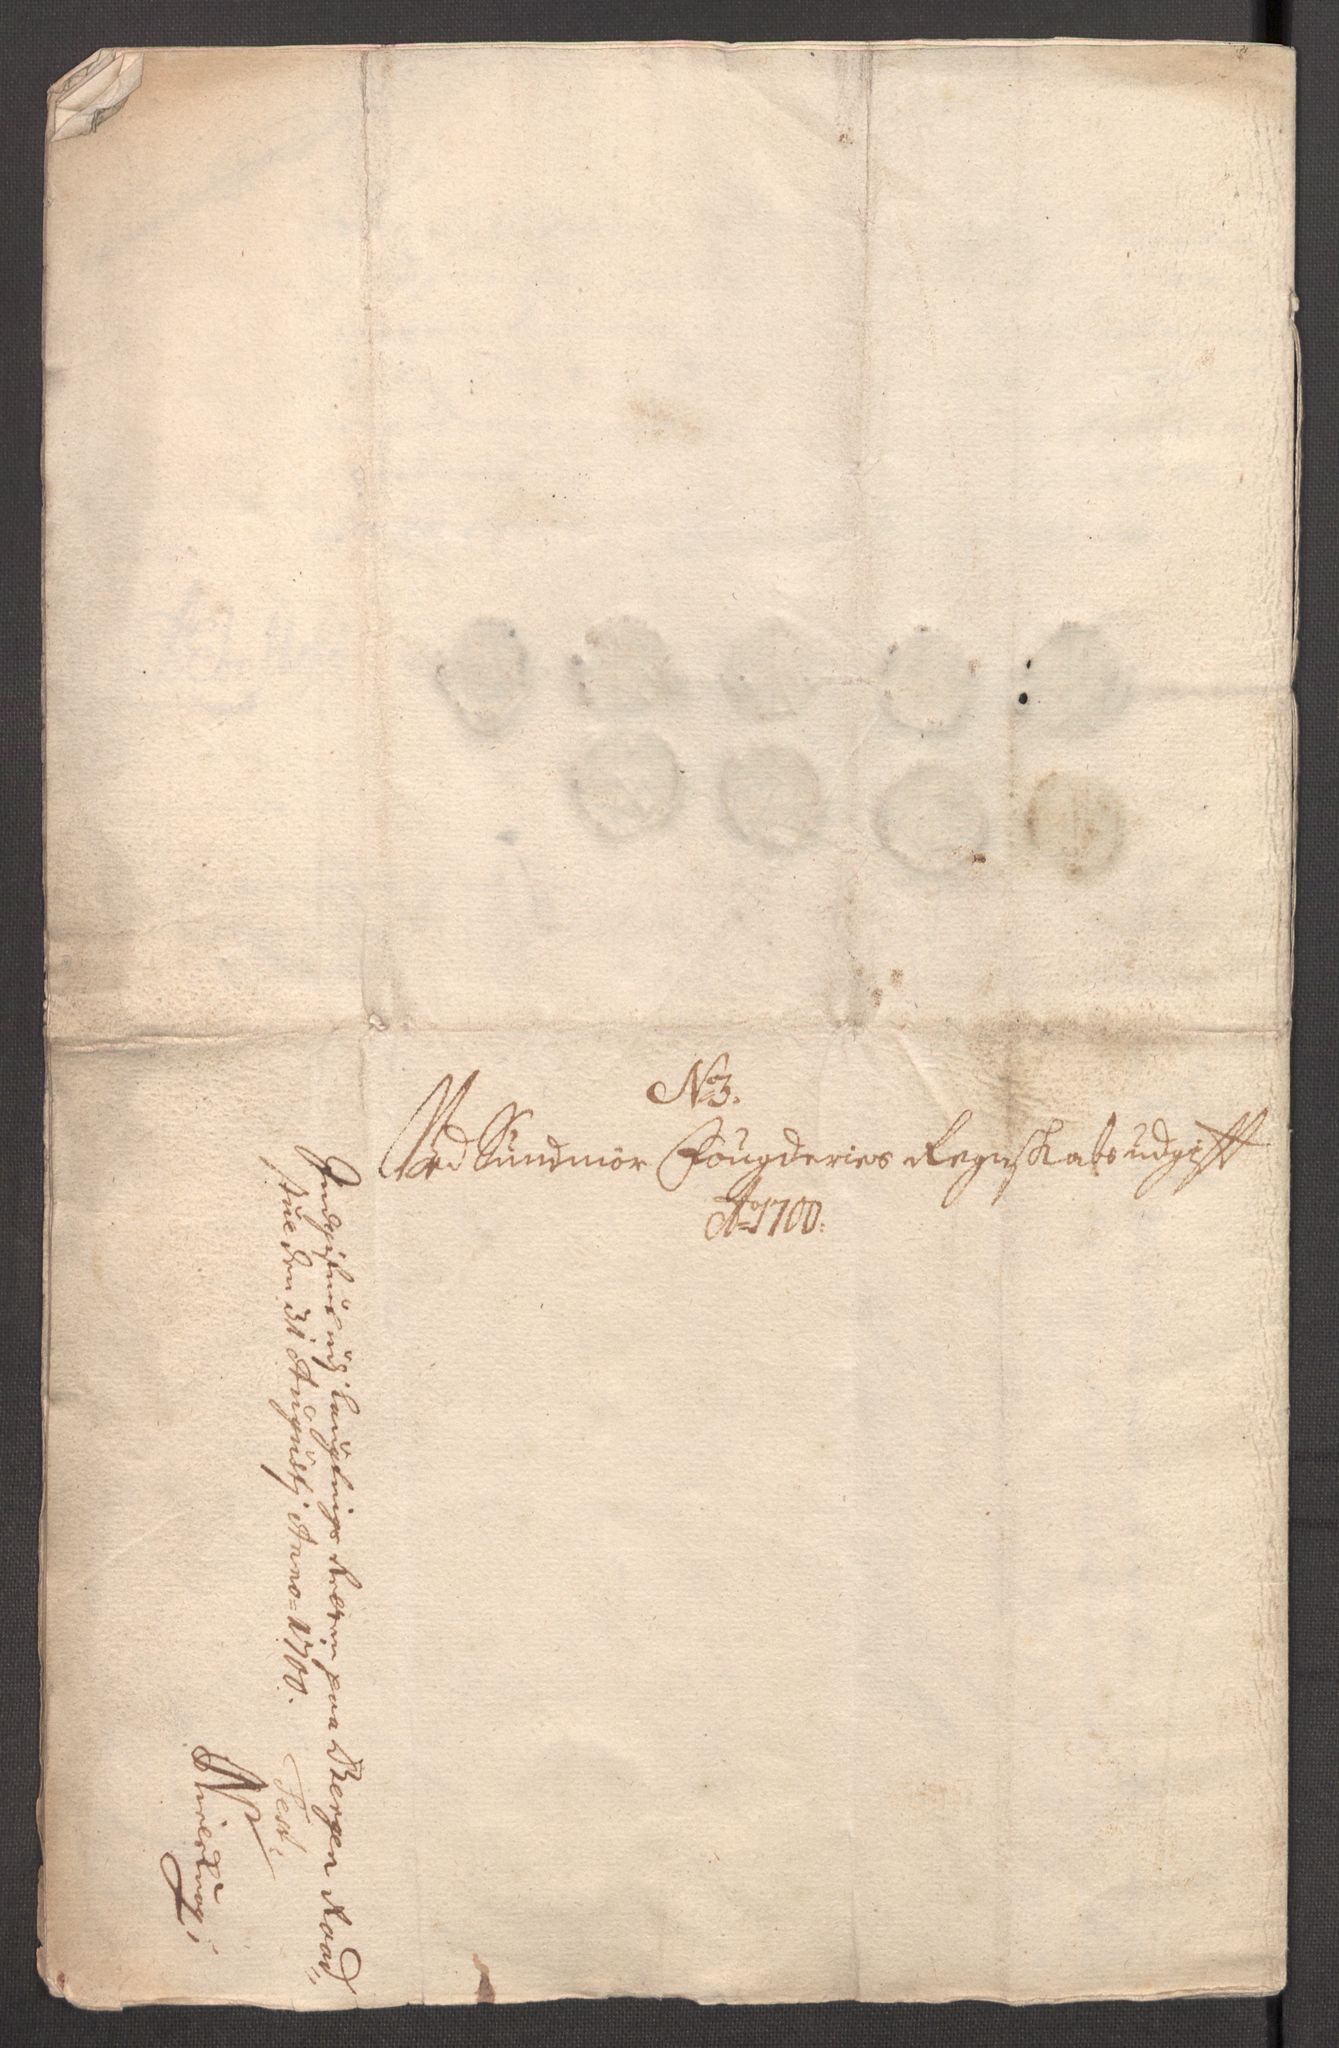 No 3.
Ved Sundmör Fougderies Regnskabs udgifft
Ao 1700.
udj Laugtings Retten paa Bergen Raad„
stue den 31 Augustj Anno = 1700.
Test: